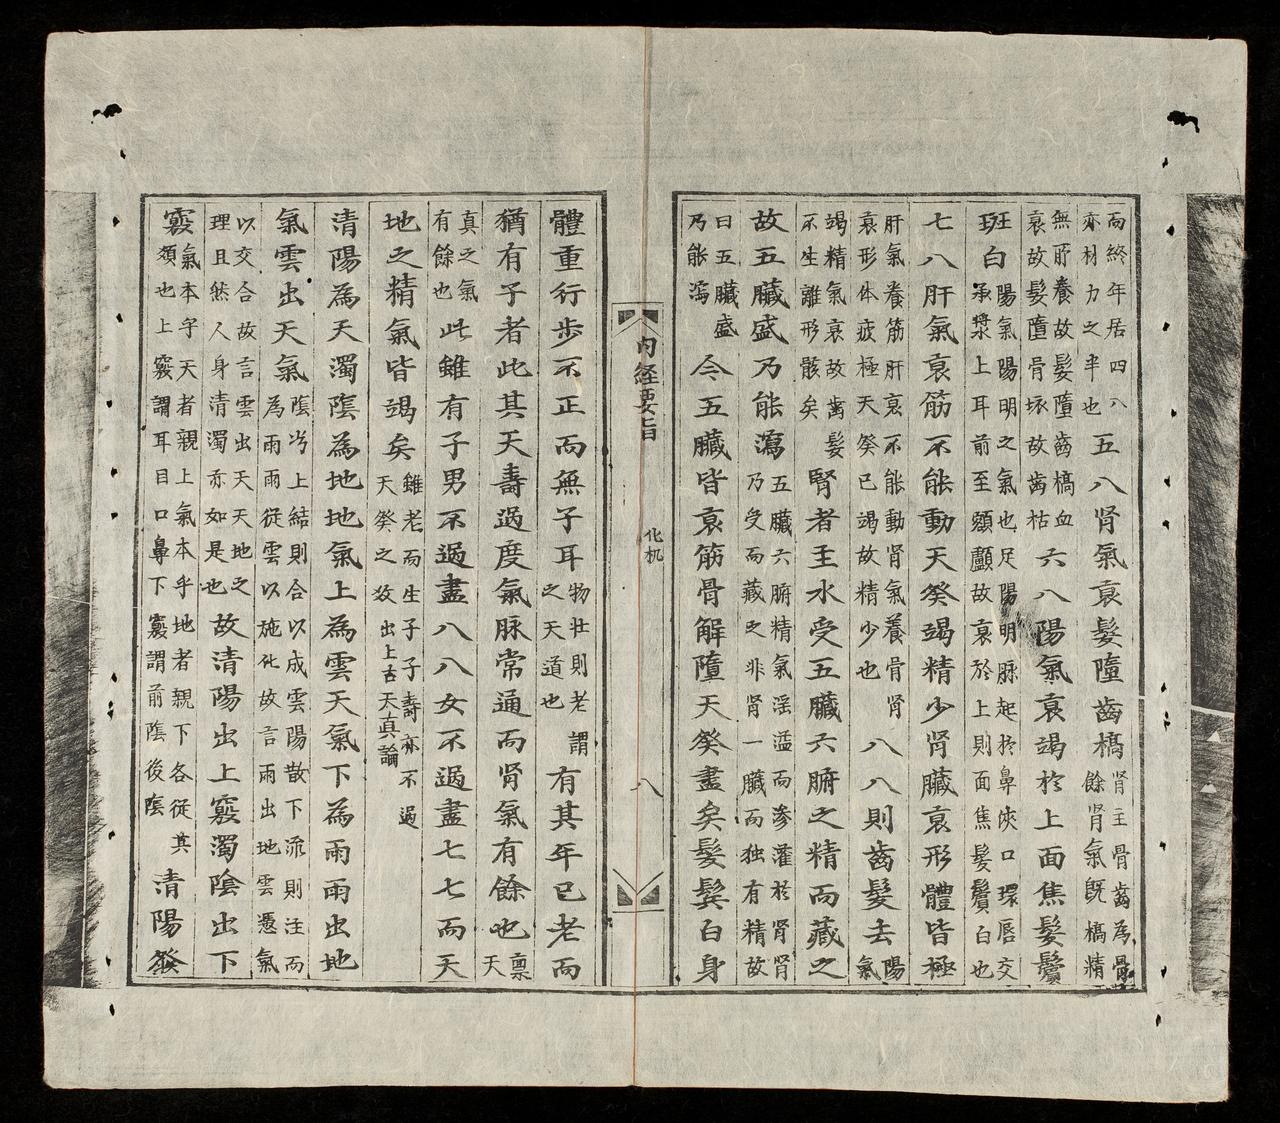 而終年居四八亦材力之半也五八肾氣衰髮墮齒槁肾主骨齒為骨餘肾氣旣槁精
無所養故髮墮齒槁血衰故髮墮骨坏故齒枯六八陽氣衰竭於上面焦髮鬢
斑白陽氣陽明之氣也足陽明脉起於鼻俠口環唇交承漿上耳前至額顱故衰於上則面焦髮鬢白也
七八肝氣衰筋不能動天癸竭精少肾臟衰形體皆極
肝氣養筋肝衰不能動肾氣養骨肾衰形体疲極天癸已竭故精少也八八則齒髮去陽氣
竭精氣衰故齒髮不生離形骸矣腎者主水受五臟六腑之精而藏之
故五臟盛乃能瀉五臟六腑精氣滛溢而滲灌於肾肾乃受而藏之非肾一臟而独有精故
曰五臟盛乃能瀉今五臟皆衰筋骨解墮天癸盡矣髮鬂白身
内経要旨 化机 八
體重行歩不正而無子耳物壮則老謂之天道也有其年已老而
猶有子者此其天壽過度氣脉常通而肾氣有餘也禀天
真之氣有餘也此雖有子男不過盡八八女不過盡七七而天
地之精氣皆竭矣雖老而生子子壽亦不過天癸之数出上古天真論
清陽為天濁隂為地地氣上為雲天氣下為雨雨出地
氣雲出天氣隂氣上結則合以成雲陽散下流則注而為雨雨從雲以施化故言雨出地雲憑氣
以交合故言雲出天天地之理且然人身清濁亦如是也故清陽出上竅濁陰出下
竅氣本乎天者親上氣本乎地者親下各從其類也上竅謂耳目口鼻下竅謂前隂後隂清陽發